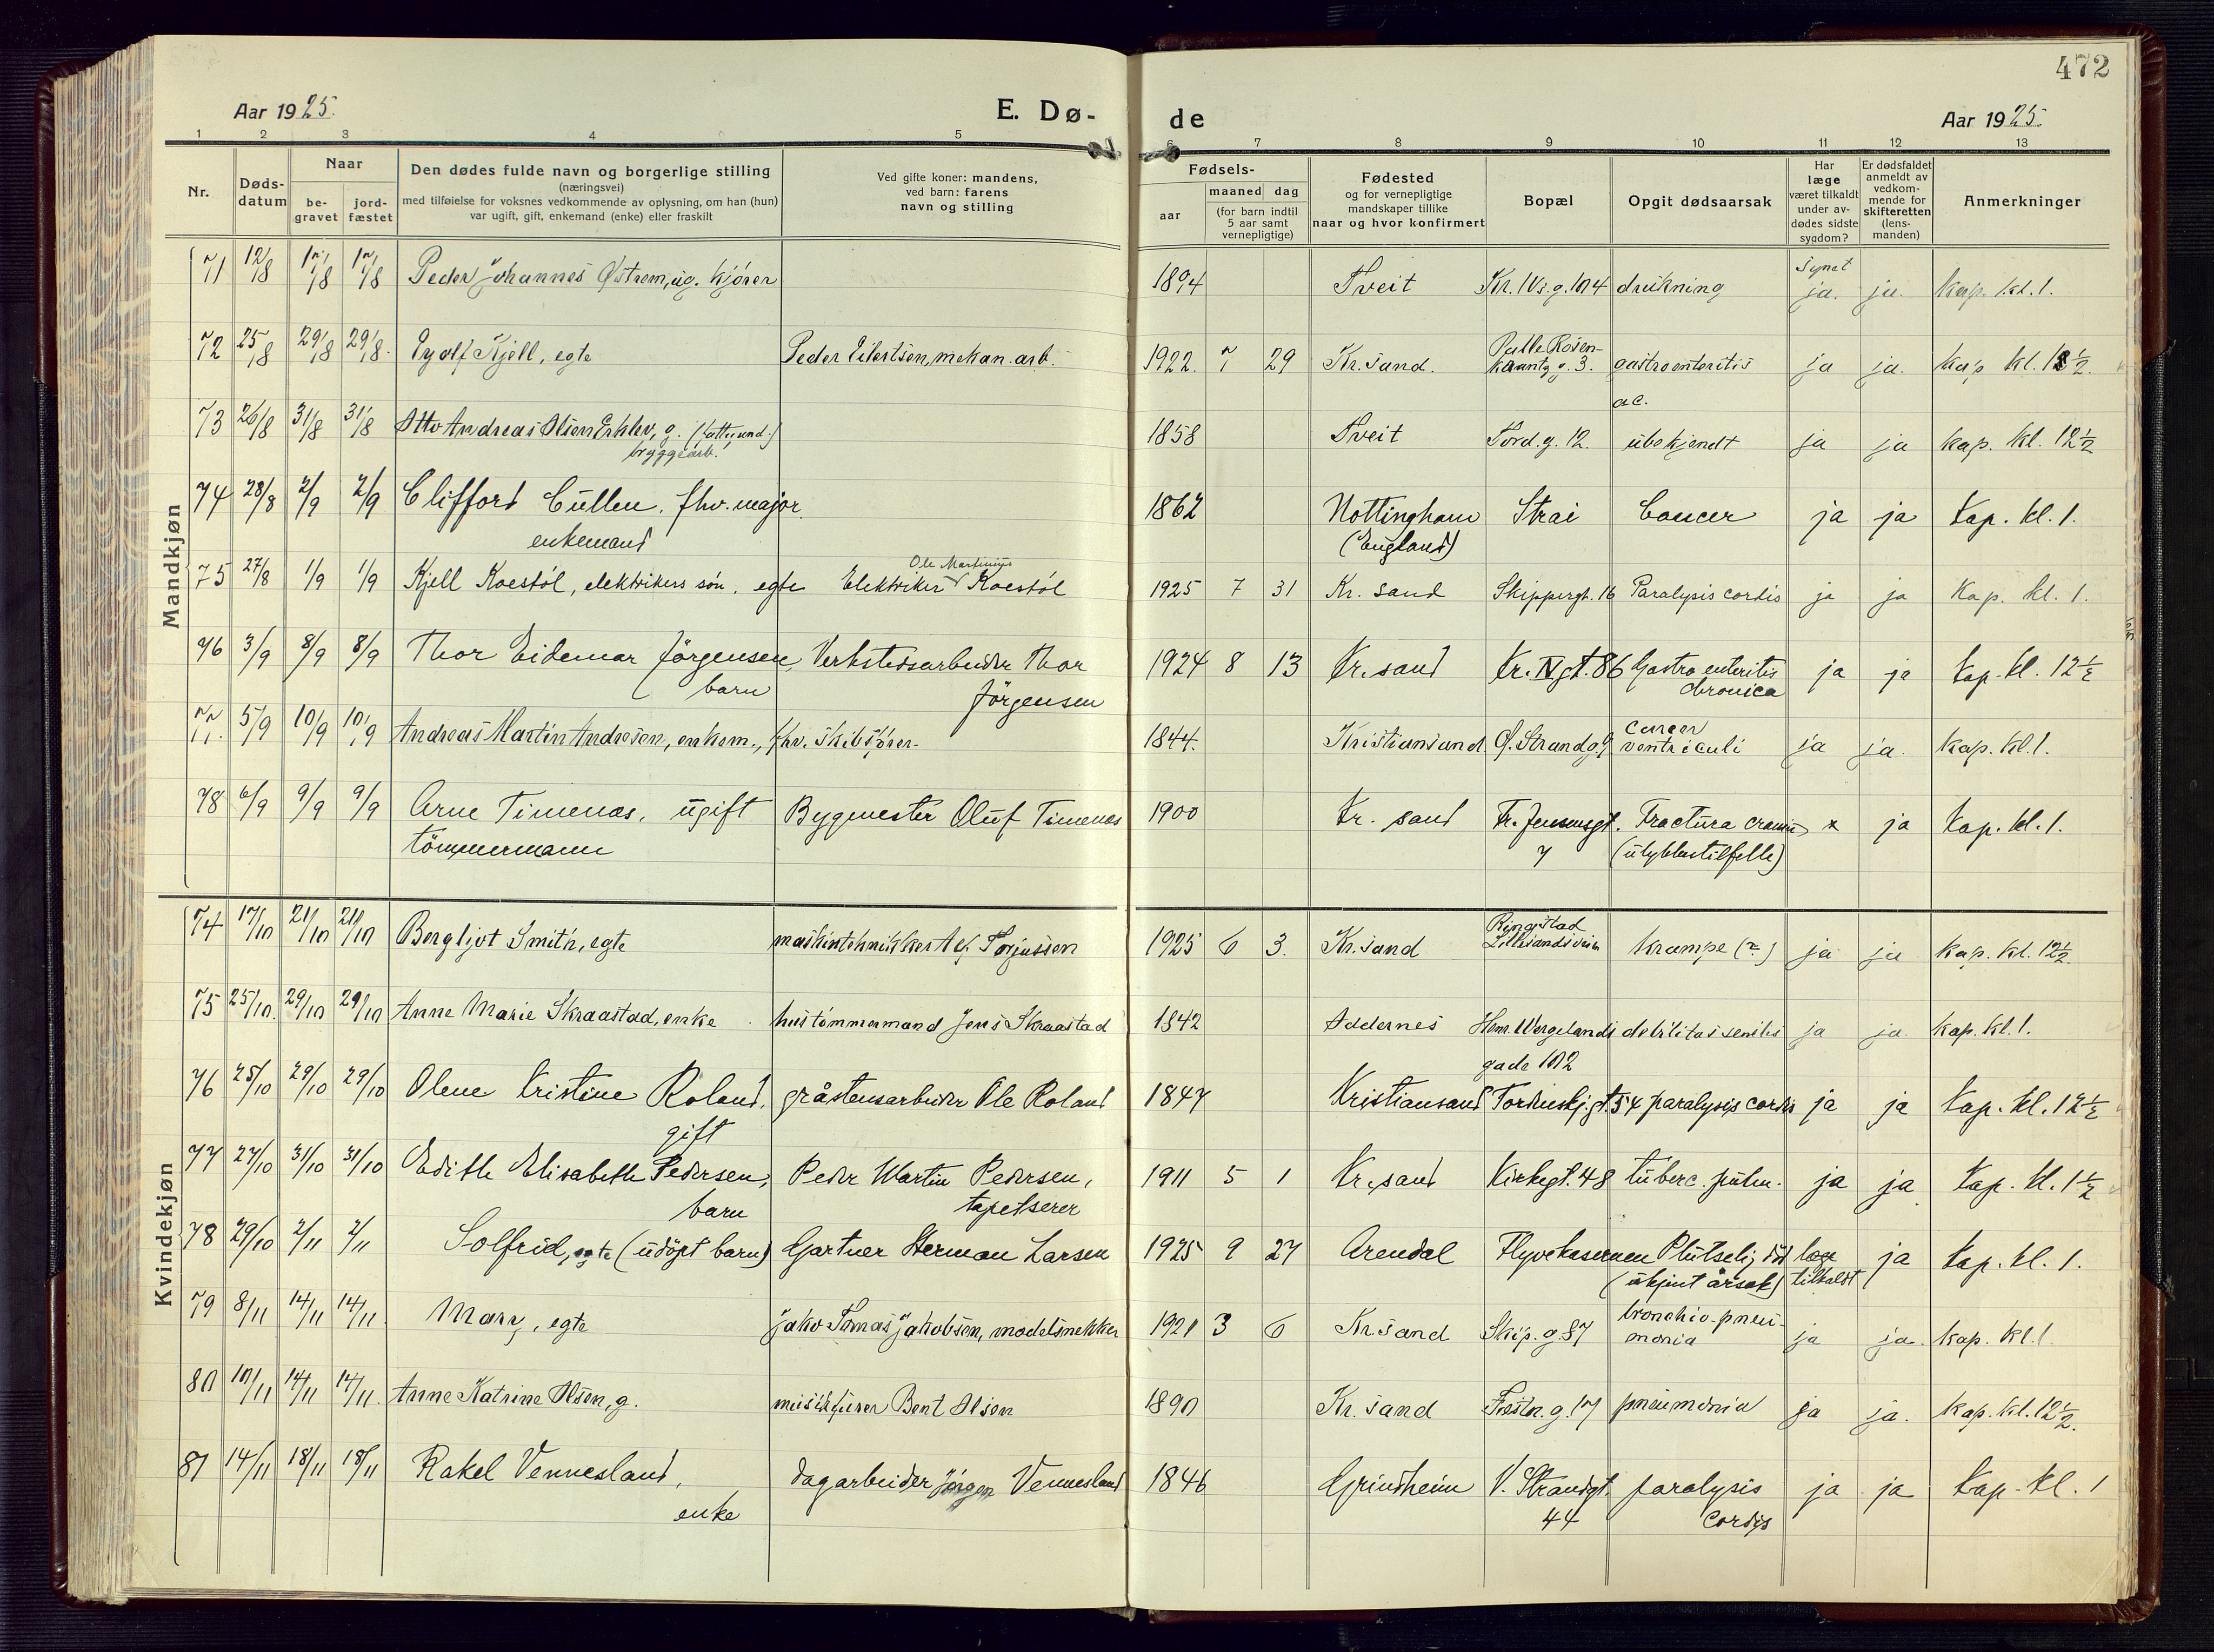 472
Aar 1925.
E. Dø-
de
Aar 1925.
1 2 3 4 5 6 7 8 9 10 11 12 13
Nr.
Døds-
datum
Naar
be-
gravet
jord-
fæstet
Den dødes fulde navn og borgerlige stilling
(næringsvei)
med tilføielse for voksnes vedkommende av oplysning, om han (hun)
var ugift, gift, enkemand (enke) eller fraskilt
Ved gifte koner: mandens,
ved barn: farens
navn og stilling
Fødsels-
aar
maaned dag
(for barn indtil
5 aar samt
vernepligtige)
Fødested
og for vernepligtige
mandskaper tillike
naar og hvor konfirmert
Bopæl
Opgit dødsaarsak
Har
læge
været tilkaldt
under av-
dødes sidste
sygdom?
Er dødsfaldet
anmeldt av
vedkom-
mende for
skifteretten
(lens-
manden)
Anmerkninger
Mandkjøn
71 12/8 17/8 17/8 Peder Johannes Østrem, ug. kjører 1894 Tveit Kr. IV s. g. 104 drukning synet ja. ja. kap. kl. 1.
72 25/8 29/8 29/8. Eyolf Kjell, egte Peder Eilertsen, mekan. arb. 1922. 7 29 Kr.sand. Palle Rosen-
krantz g. 3. gastroenteritis ja ja. kap kl. 12 1/2.
ac.
73 26/8 31/8 31/8 Otto Andreas Olsen Erklev, g.
bryggearb. 1858 Tveit Tord. g. 12. ubekjendt ja ja kap. kl. 12 1/2
74 28/8 2/9 2/9 Clifford Cullen, fhv. major 1862 Nottingham Strai Cancer ja ja Kap. kl. 1.
enkemand (England)
75 27/8 1/9 1/9 Kjell Koestøl, elektrikers søn, egte Elektriker Ole Martinius Koestøl 1925 7 31 Kr. sand Skippergt. 16 Paralysis cordis ja ja Kap. kl. 1.
76 3/9 8/9 8/9 Thor Eidemar Jörgensen, Verkstedsarbeider Thor 1924 8 13 Kr.sand Kr. IV gt. 86 Gastro enteritis ja ja Kap. kl. 12 1/2
barn Jörgensen chronica
77. 5/9 10/9 10/9 Andreas Martin Andresen, enkem., fhv. skibsfører. 1844. Kristiansand. Ø. Strandg. 9 cancer
ventriculi ja ja. kap. kl. 1.
78 6/9 9/9 9/9 Arne Timenes, ugift Bygmester Oluf Timenes 1900 Kr. sand Fr. Jensensgt. Fractura cranii x ja Kap. kl. 1.
tömmermann 7 (ulykkestilfelle)
Kvindekjøn
74 17/10 21/10 21/10 Bergljot Smith, egte maskintekniker Alf Torjussen 1925 6 3. Kr.sand Ringstad
Lillesandsvein krampe (?) ja ja kap. kl. 12 1/2.
75 25/10. 29/10 29/10 Anne Marie Skraastad, enke hustømmermand Jens Skraastad 1842 Oddernes Henr. Wergelands debilitas senilis ja ja kap. kl. 1.
gade 102
76 25/10 29/10 29/10 Olene Kristine Roland, gråstensarbeider Ole Roland 1847 Kristiansand Tordenskj. gt. 54 paralysis cordis ja ja Kap. kl. 12 1/2
gift
77 27/10 31/10 31/10 Edith Elisabeth Pedersen, Peder Martin Pedersen, 1911 5 1 Kr.sand Kirkegt. 48 tuberc. pulm. ja ja Kap. kl. 1 1/2
barn tapetserer
78 29/10 2/11 2/11 Solfrid, egte (udöpt barn) Gartner Herman Larsen 1925 9 27 Arendal Flyvekasernen Plutselig död læge ja Kap. kl. 1.
(ukjent årsak) tilkaldt
79 8/11 14/11 14/11 Mary, egte Jakob Tomas Jakobsen, modelsnekker 1921 3 6 Kr.sand Skip. g. 87 bronchio-pneu-
monia ja ja. kap. kl. 1
80 10/11 14/11 14/11. Anne Katrine Olsen, g. musikfører Bent Olsen 1890 Kr. sand Festn. g. 17 pneumonia ja ja. kap. kl. 12 1/2.
81 14/11 18/11 18/11 Rakel Vennesland, dagarbeider Jörgen Vennesland 1846 Grindheim V. Strandgt. paralysis ja ja Kap. kl. 1
enke 44 cordis